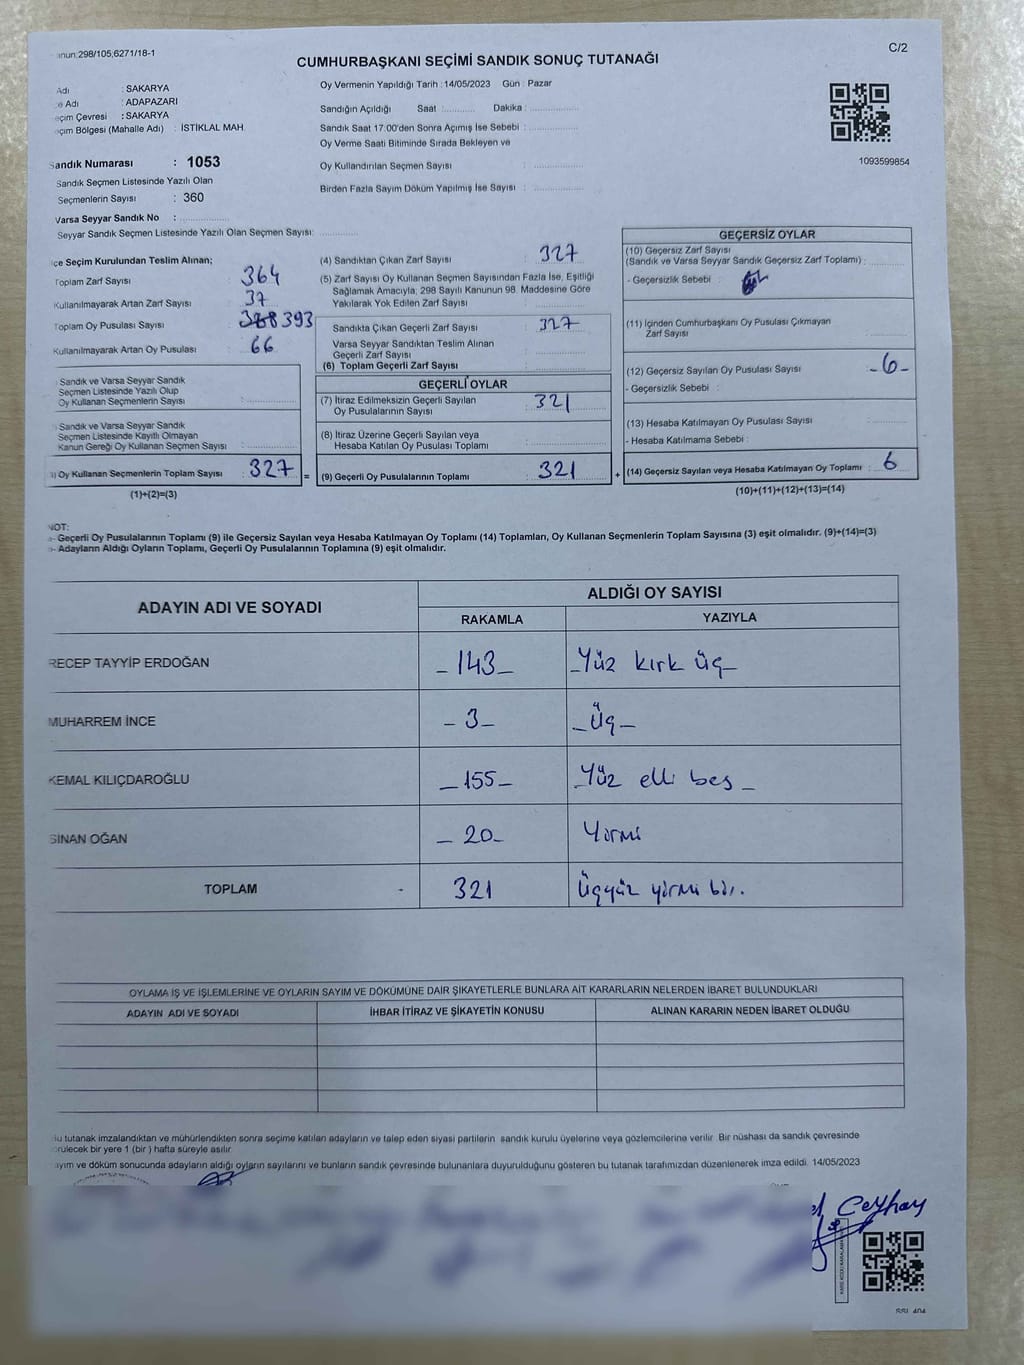 anun:298/105;6271/18-1
C/2
CUMHURBAŞKANI SEÇİMİ SANDIK SONUÇ TUTANAĞI
Adı : SAKARYA
e Adı : ADAPAZARI
eçim Çevresi : SAKARYA
eçim Bölgesi (Mahalle Adı) : İSTİKLAL MAH.
Sandık Numarası : 1053
Sandık Seçmen Listesinde Yazılı Olan
Seçmenlerin Sayısı : 360
Varsa Seyyar Sandık No :
Seyyar Sandık Seçmen Listesinde Yazılı Olan Seçmen Sayısı:
Oy Vermenin Yapıldığı Tarih : 14/05/2023 Gün : Pazar
Sandığın Açıldığı Saat : Dakika :
Sandık Saat 17:00'den Sonra Açımış İse Sebebi :
Oy Verme Saati Bitiminde Sırada Bekleyen ve
Oy Kullandırılan Seçmen Sayısı :
Birden Fazla Sayım Döküm Yapılmış İse Sayısı :
1093599854
çe Seçim Kurulundan Teslim Alınan;
Toplam Zarf Sayısı : 364
Kullanılmayarak Artan Zarf Sayısı : 37
Toplam Oy Pusulası Sayısı : 393
Kullanılmayarak Artan Oy Pusulası : 66
Sandık ve Varsa Seyyar Sandık
Seçmen Listesinde Yazılı Olup
Oy Kullanan Seçmenlerin Sayısı :
Sandık ve Varsa Seyyar Sandık
Seçmen Listesinde Kayıtlı Olmayan
Kanun Gereği Oy Kullanan Seçmen Sayısı :
) Oy Kullanan Seçmenlerin Toplam Sayısı : 327 =
(1)+(2)=(3)
(4) Sandıktan Çıkan Zarf Sayısı : 327
(5) Zarf Sayısı Oy Kullanan Seçmen Sayısından Fazla İse, Eşitliği
Sağlamak Amacıyla; 298 Sayılı Kanunun 98. Maddesine Göre
Yakılarak Yok Edilen Zarf Sayısı :
Sandıkta Çıkan Geçerli Zarf Sayısı : 327
Varsa Seyyar Sandıktan Teslim Alınan
Geçerli Zarf Sayısı :
(6) Toplam Geçerli Zarf Sayısı :
GEÇERLİ OYLAR
(7) İtiraz Edilmeksizin Geçerli Sayılan
Oy Pusulalarının Sayısı : 321
(8) İtiraz Üzerine Geçerli Sayılan veya
Hesaba Katılan Oy Pusulası Toplamı :
(9) Geçerli Oy Pusulalarının Toplamı : 321 +
GEÇERSİZ OYLAR
(10) Geçersiz Zarf Sayısı
(Sandık ve Varsa Seyyar Sandık Geçersiz Zarf Toplamı) :
- Geçersizlik Sebebi :
(11) İçinden Cumhurbaşkanı Oy Pusulası Çıkmayan
Zarf Sayısı :
(12) Geçersiz Sayılan Oy Pusulası Sayısı : -6-
- Geçersizlik Sebebi :
(13) Hesaba Katılmayan Oy Pusulası Sayısı :
- Hesaba Katılmama Sebebi :
(14) Geçersiz Sayılan veya Hesaba Katılmayan Oy Toplamı : 6
(10)+(11)+(12)+(13)=(14)
NOT:
- Geçerli Oy Pusulalarının Toplamı (9) ile Geçersiz Sayılan veya Hesaba Katılmayan Oy Toplamı (14) Toplamları, Oy Kullanan Seçmenlerin Toplam Sayısına (3) eşit olmalıdır. (9)+(14)=(3)
- Adayların Aldığı Oyların Toplamı, Geçerli Oy Pusulalarının Toplamına (9) eşit olmalıdır.
ADAYIN ADI VE SOYADI
ALDIĞI OY SAYISI
RAKAMLA YAZIYLA
RECEP TAYYİP ERDOĞAN -143- -Yüz kırk üç-
MUHARREM İNCE -3- -Üç-
KEMAL KILIÇDAROĞLU -155- -Yüz elli beş-
SİNAN OĞAN -20- Yirmi
TOPLAM - 321 Üçyüz yirmi bir.
OYLAMA İŞ VE İŞLEMLERİNE VE OYLARIN SAYIM VE DÖKÜMÜNE DAİR ŞİKAYETLERLE BUNLARA AİT KARARLARIN NELERDEN İBARET BULUNDUKLARI
ADAYIN ADI VE SOYADI İHBAR İTİRAZ VE ŞİKAYETİN KONUSU ALINAN KARARIN NEDEN İBARET OLDUĞU
u tutanak imzalandıktan ve mühürlendikten sonra seçime katılan adayların ve talep eden siyasi partilerin sandık kurulu üyelerine veya gözlemcilerine verilir. Bir nüshası da sandık çevresinde
örülecek bir yere 1 (bir ) hafta süreyle asılır.
ayım ve döküm sonucunda adayların aldığı oyların sayılarını ve bunların sandık çevresinde bulunanlara duyurulduğunu gösteren bu tutanak tarafımızdan düzenlenerek imza edildi. 14/05/2023
Ceyhay